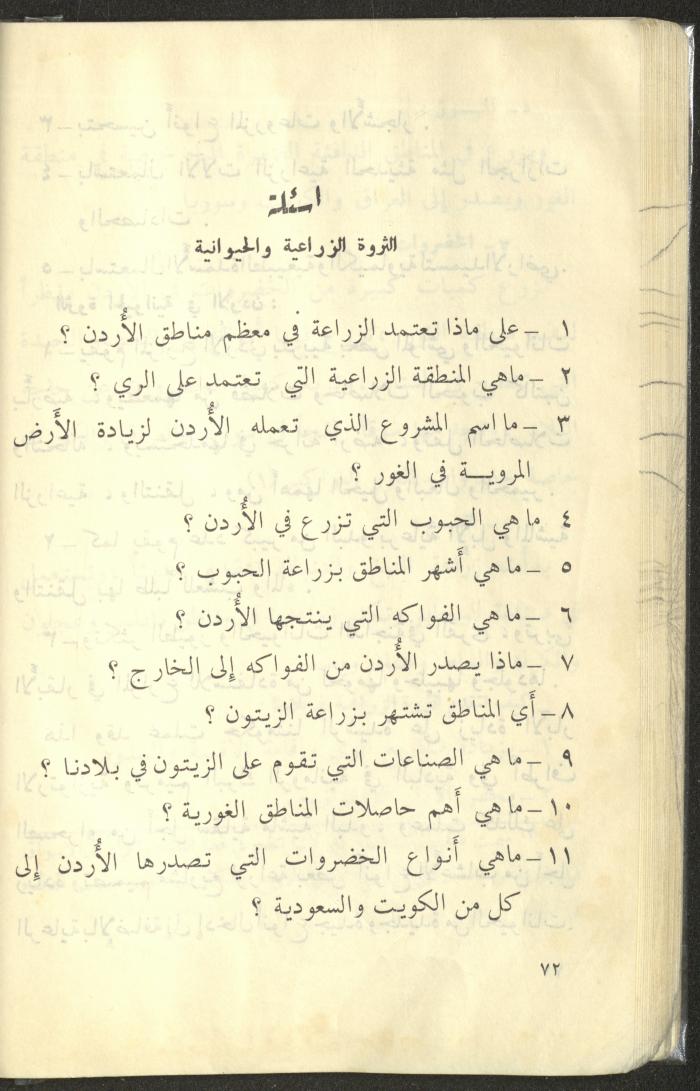 اسئلة
الثروة الزراعية والحيوانية
١ – على ماذا تعتمد الزراعة في معظم مناطق الأُردن ؟
٢ – ماهي المنطقة الزراعية التي تعتمد على الري ؟
٣ – ما اسم المشروع الذي تعمله الأُردن لزيادة الأَرض
المرويــة في الغور ؟
٤ ما هي الحبوب التي تزرع في الأُردن ؟
٥ – ما هي أَشهر المناطق بزراعة الحبوب ؟
٦ – ما هي الفواكه التي ينتجها الأُردن ؟
٧ – ماذا يصدر الأُردن من الفواكه إِلى الخارج ؟
٨ – أَي المناطق تشتهر بزراعة الزيتون ؟
٩ – ما هي الصناعات التي تقوم على الزيتون في بلادنا ؟
١٠ – ما هي أَهم حاصلات المناطق الغورية ؟
١١ – ماهي أَنواع الخضروات التي تصدرها الأُردن إِلى
كل من الكويت والسعودية ؟
٧٢